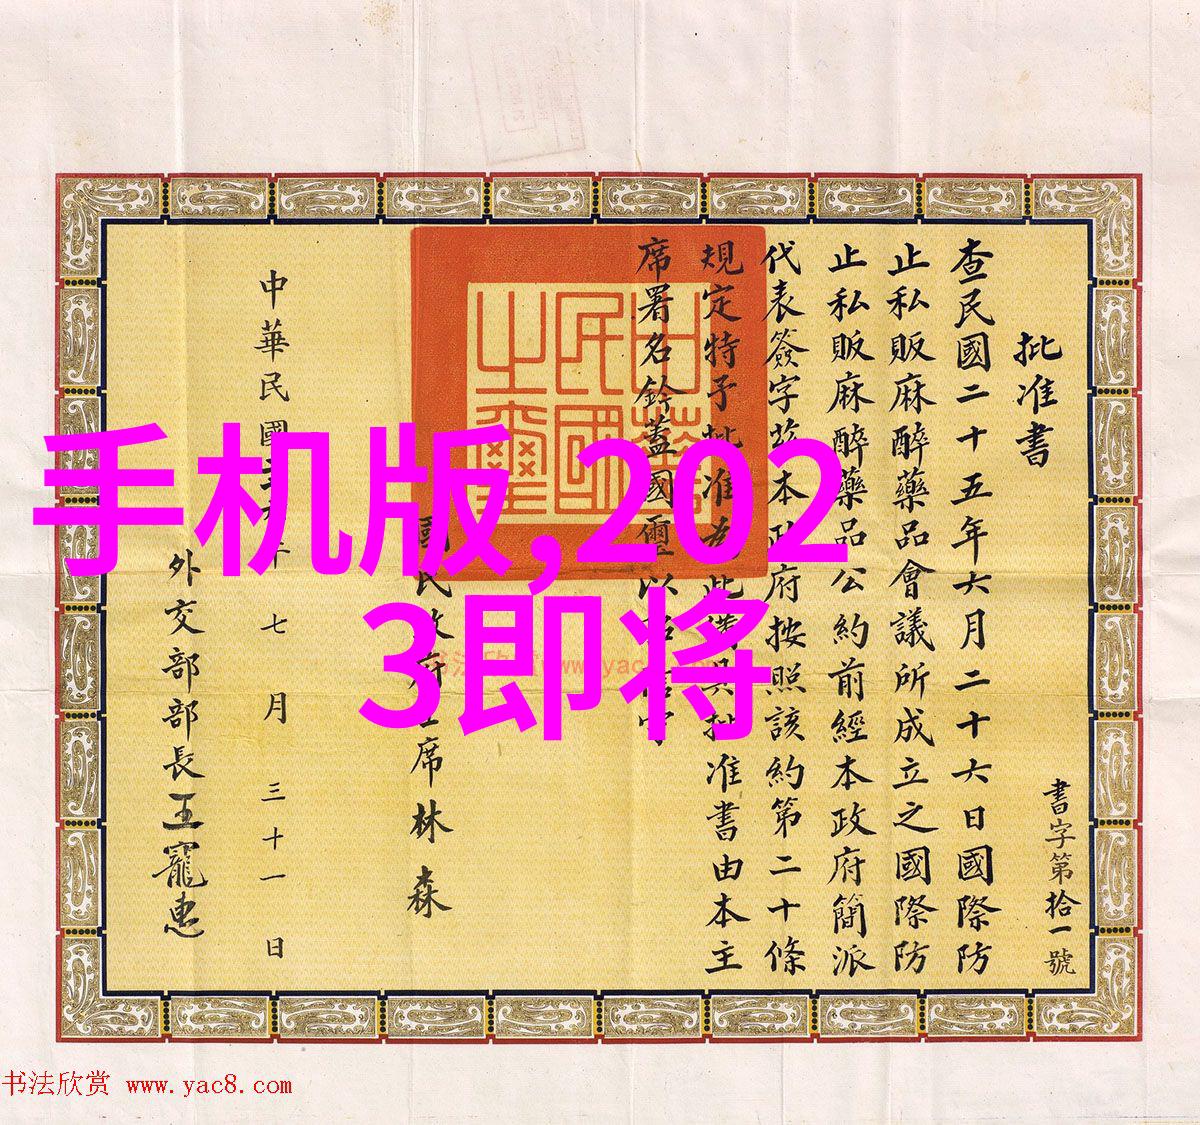 批准書
書字第拾一號
查民國二十五年六月二十六日國際防
止私販麻醉藥品會議所成立之國際防
止私販麻醉藥品公約前經本政府簡派
代表簽字茲本政府按照該約第二十條
規定特予批准為此備具批准書由本主
席署名鈐蓋國璽以昭信守
中華民國之璽
國民政府主席林森
中華民國年七月三十一日
外交部部長王寵惠
手机版,202
3即将
书法欣赏 www.yac8.com
书法欣赏 www.yac8.com